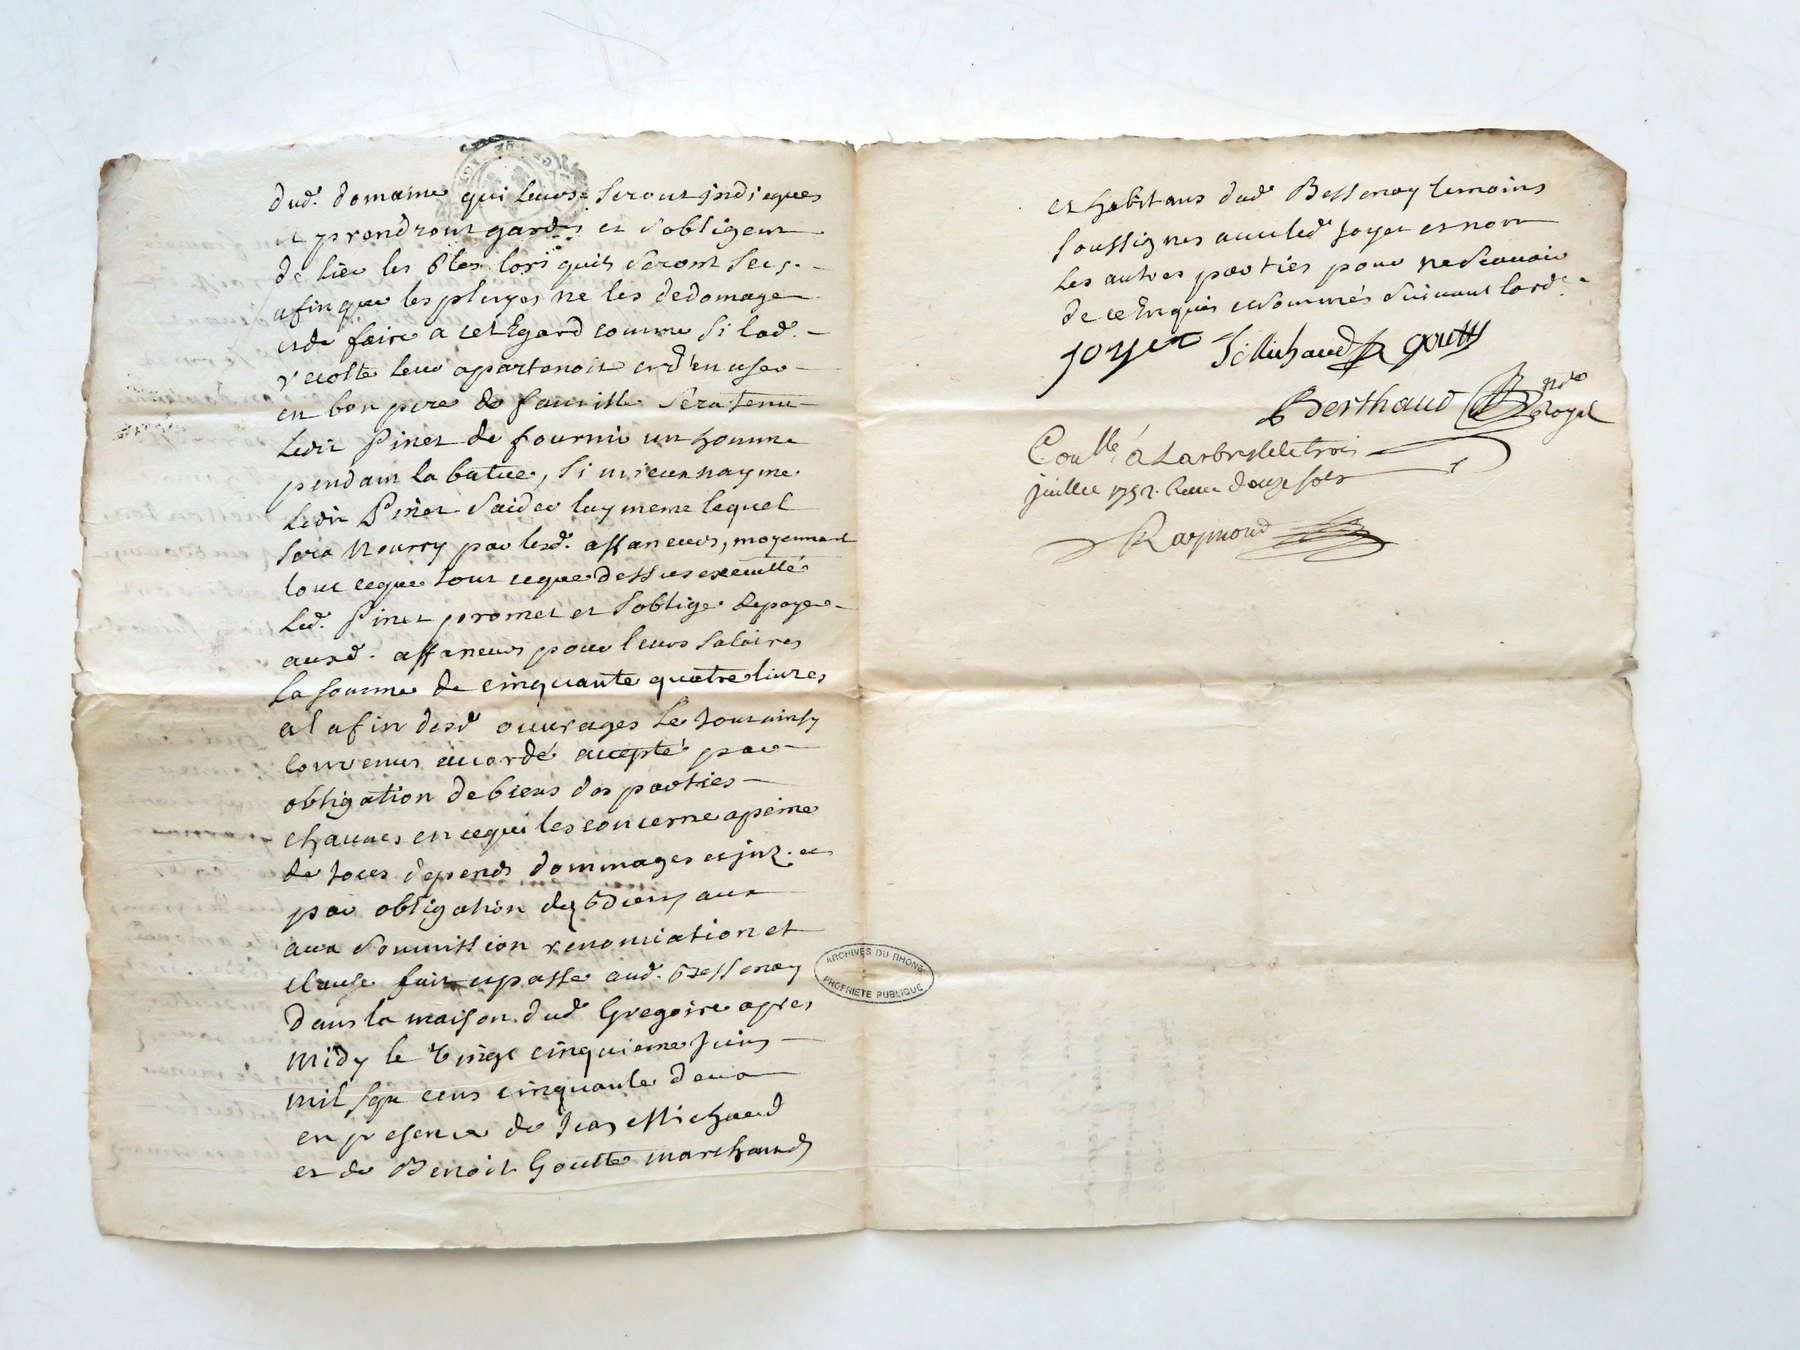 dud. domaine qui leurs seront jndiqués
et prendront garde et s'obligent
de lier les bles lors quils seront secs
afin que les pluyes ne les dedomage
et de faire a cet Egard comme si lad.
recolte leur apartenoit et d'en user
en bon pere de famille sera tenu
ledit Pinet de fournir un homme
pendant la batue, si mieux n ayme
ledit Pinet s'aider luy meme lequel
sera Nourry par lesd. affaneurs, moyennant
tout ceque tout ceque dessus executté
led. Pinet promet et s'oblige de payer
auxd. affaneurs pour leurs salaires
la somme de cinquante quatre livres
a la fin desd ouvrages Le tout ainsy
convenus accordé accepté par
obligation de biens des parties
chacunes en ce qui les concerne a peine
de tous depends dommages et jnt. et
par obligation de biens aux
aux soumission renonciation et
clause fait et passe aud. Bessenay
Dans la maison dud Gregoire apres
Midy le vingt cinquieme juin
mil sept cens cinquante deux
en presence de Jean Michaud
et de Benoit Goutte marchands
et habitans dud Bessenay temoins
soussignes avec led joyet et non
les autres parties pour ne scavoir
de ce Enquis et sommés suivant lord.
joyet J Michaud goutte
Berthaud nre Royal
Conllé a Larbresle le trois
juillet 1752. Recu douze sols
Raymond
ARCHIVES DU RHONE
PROPRIETE PUBLIQUE